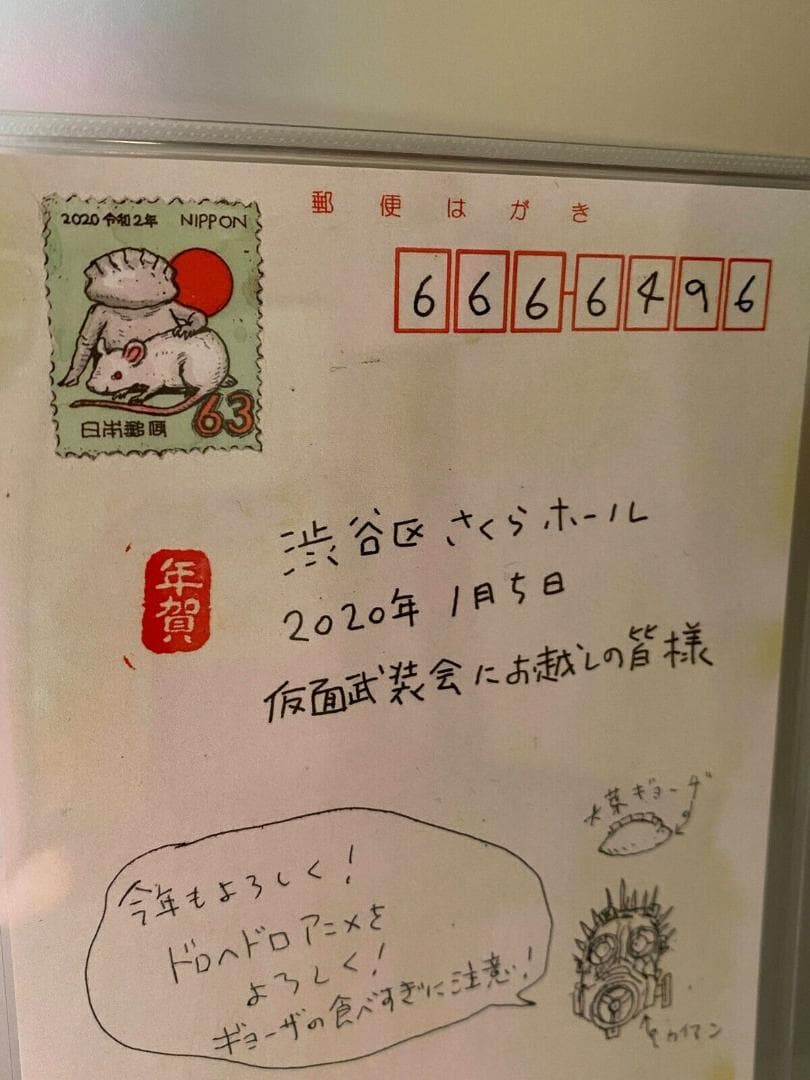 2020 令和2年 NIPPON
63
日本郵便
郵便はがき
666-6496
年賀
渋谷区 さくらホール
2020年 1月5日
仮面武装会にお越しの皆様
大葉ギョーザ
今年もよろしく!
ドロヘドロアニメを
よろしく!
ギョーザの食べすぎに注意!
カイマン